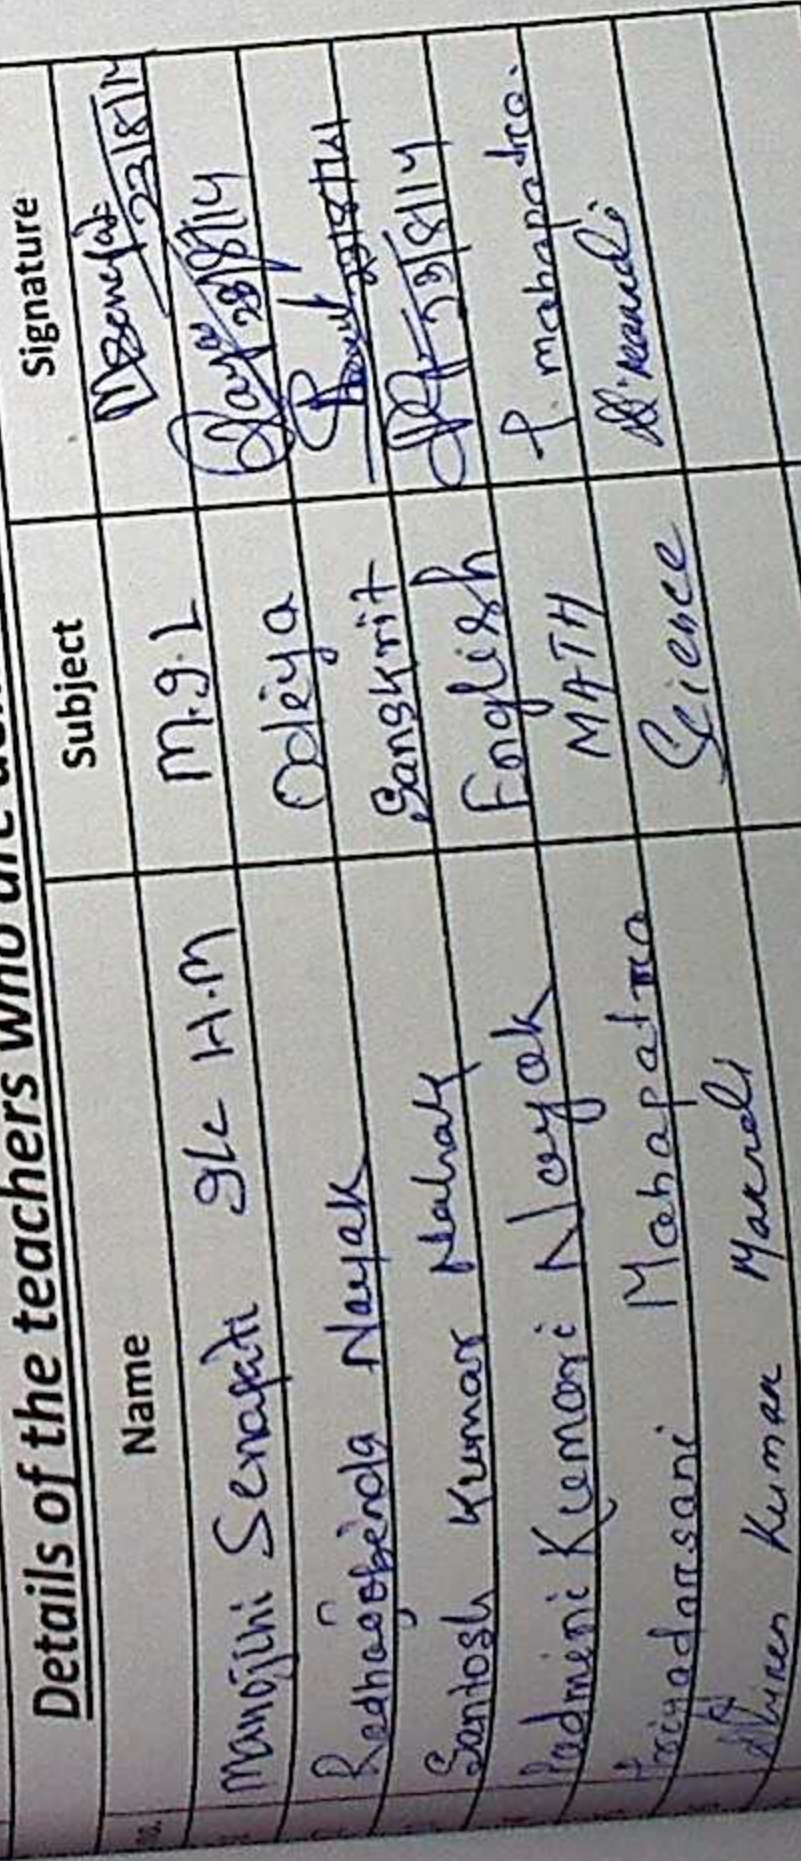 Details of the teachers who are
Name Subject Signature
Manojini Senapati I/c H.M M.I.L MSenapati 23/8/14
Radhagobinda Nayak Odiya Nayak 23/8/14
Santosh Kumar Nahak Sanskrit 23/8/14
Padmini Kumari Nayak English 23/8/14
Priyadarsani Mahapatra MATH P. mahapatra.
Dhiren Kumar Marndi Science D. marndi